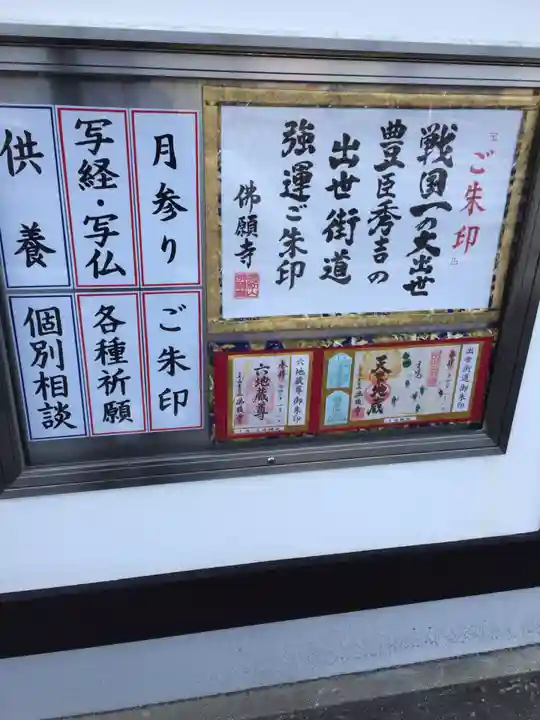 ご朱印
戦国一の大出世
豊臣秀吉の
出世街道
強運ご朱印
佛願寺
月参り
写経・写仏
供養
ご朱印
各種祈願
個別相談
出世街道御朱印
天下地蔵
六地蔵尊御朱印
六地蔵尊